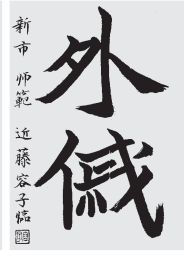 外儀
新市 师範 近藤容子臨